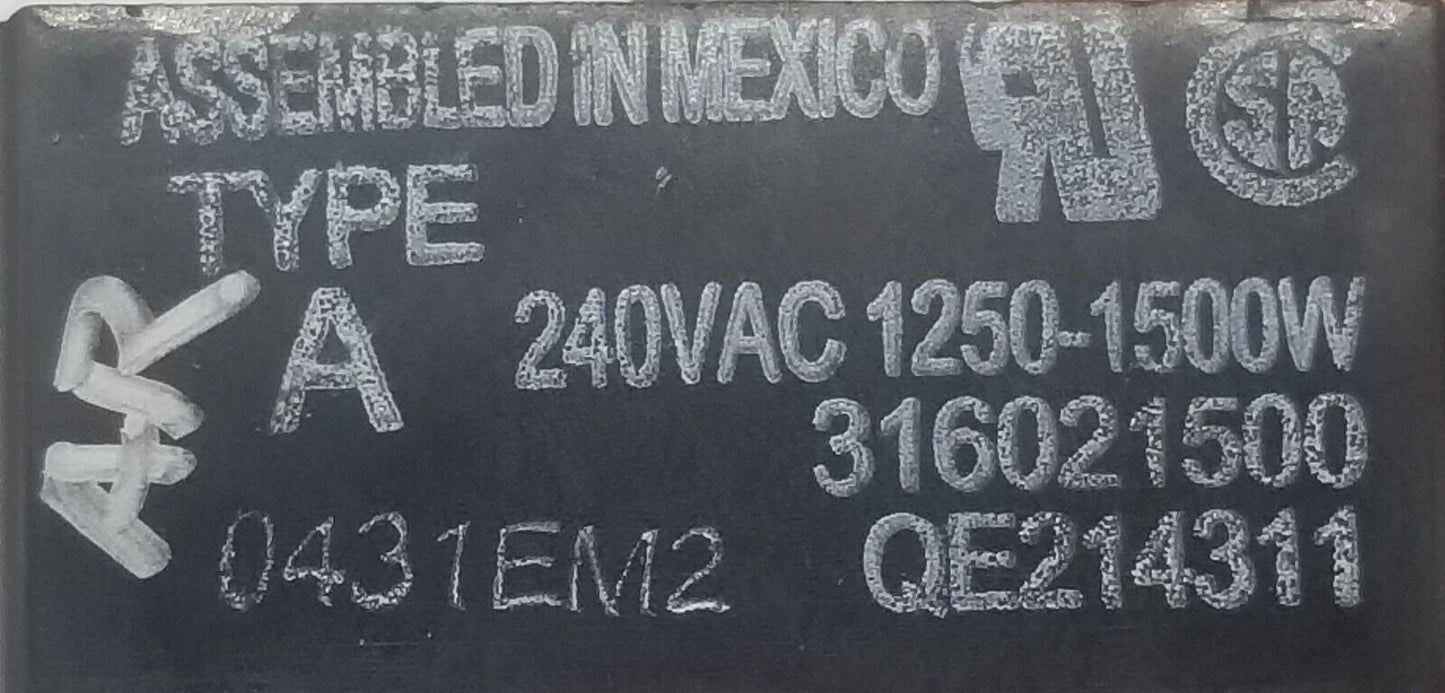 ASSEMBLED IN MEXICO
TYPE
A
240VAC 1250-1500W
316021500
0431EM2
QE214311